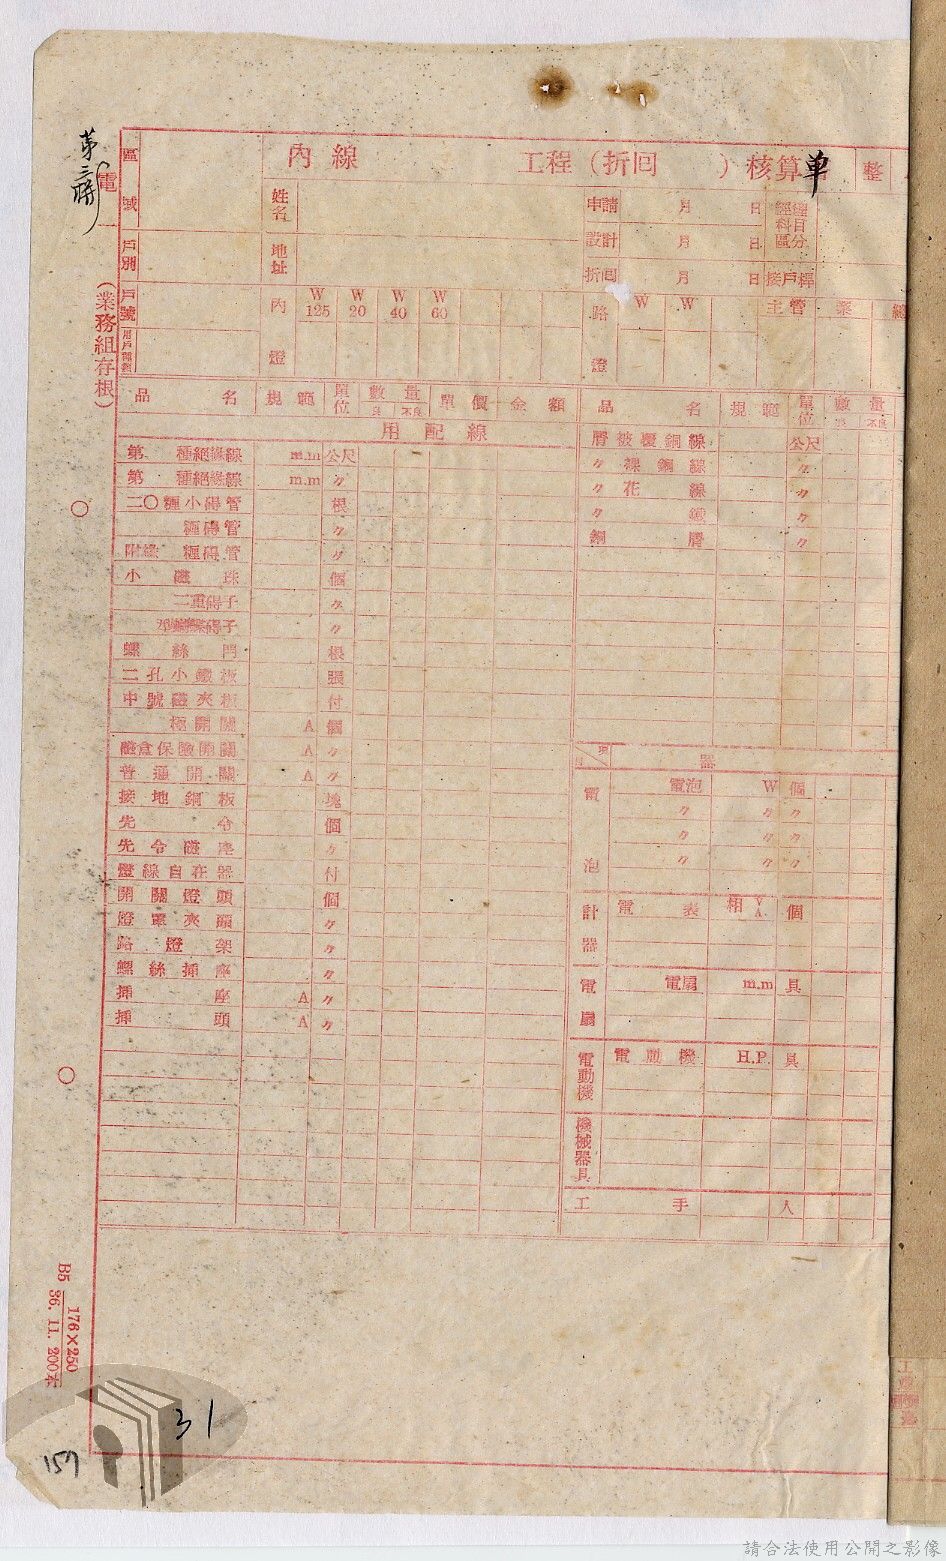 區域
內線 工程（折回 ）核算單 整
姓名
申請 月 日
設計 月 日
折回 月 日 接戶桿
戶別
地址
戶號
內燈 W 125 W 20 W 40 W 60
路燈 W W 主管 業 總
電
（業務組存根）
品名 規範 單位 數量 良 不良 單價 金額 品名 規範 單位 數量 良 不良
用配線
第 種絕緣線 m.m 公尺
第 種絕緣線 m.m 〃
二〇糎小碍管 根
糎碍管 〃
附綠 糎碍管 〃
小磁珠 個
二重碍子 〃
螺絲門 根
二孔小鐵板 張
中號磁夾板 付
極開關 A 個
磁盒保險開關 A 〃
普通開關 A 〃
接地銅板 塊
先令 個
先令磁座 〃
燈線自在器 付
開關燈頭 個
燈罩夾頭 〃
路燈架 〃
螺絲插座 〃
插座 A 〃
插頭 A 〃
屑被覆銅線 公尺
〃裸銅線 〃
〃花線 〃
〃 鐵 〃
銅屑 〃
器
電泡 電泡 W 個
〃 〃 〃
〃 〃 〃
〃 〃 〃
計器 電表 相 V A 個
電扇 電扇 m.m 具
電動機 電動機 H.P. 具
機械器具
工手 人
B5 176×250
36. 11. 200本
31
159
請合法使用公開之影像